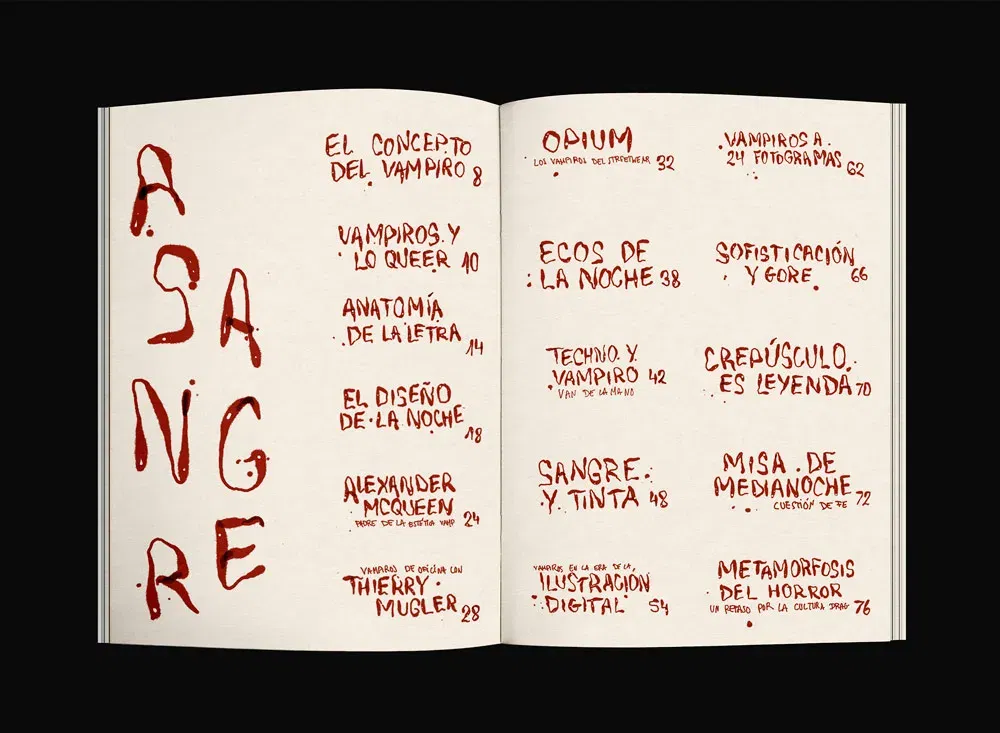 A
SANGRE
EL CONCEPTO
DEL VAMPIRO 8
VAMPIROS Y
LO QUEER 10
ANATOMÍA
DE LA LETRA 14
EL DISEÑO
DE LA NOCHE 18
ALEXANDER
MCQUEEN
PADRE DE LA ESTÉTICA VAMP 24
VAMPIROS DE OFICINA CON
THIERRY
MUGLER 28
OPIUM
LOS VAMPIROS DEL STREETWEAR 32
ECOS DE
LA NOCHE 38
TECHNO Y
VAMPIRO 42
VAN DE LA MANO
SANGRE
Y TINTA 48
VAMPIROS EN LA ERA DE LA
ILUSTRACIÓN
DIGITAL 54
VAMPIROS A
24 FOTOGRAMAS 62
SOFISTICACIÓN
Y GORE 66
CREPÚSCULO
ES LEYENDA 70
MISA DE
MEDIANOCHE 72
CUESTIÓN DE FE
METAMORFOSIS
DEL HORROR
UN REPASO POR LA CULTURA DRAG 76